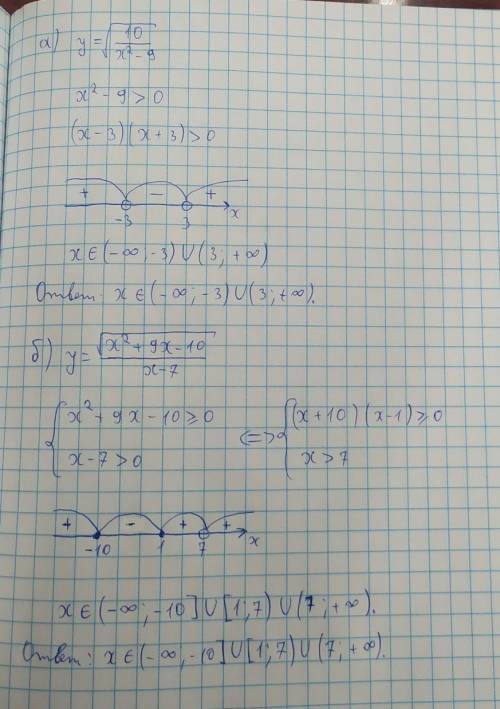 а) y = √(10/(x² - 9))
x² - 9 > 0
(x - 3)(x + 3) > 0
+ - +
-3 3 x
x ∈ (-∞; -3) ∪ (3; +∞)
Ответ: x ∈ (-∞; -3) ∪ (3; +∞).
б) y = √(x² + 9x - 10)/(x - 7)
{ x² + 9x - 10 ≥ 0 <=> { (x + 10)(x - 1) ≥ 0
x - 7 > 0 x > 7
+ - + +
-10 1 7 x
x ∈ (-∞; -10] ∪ [1; 7) ∪ (7; +∞).
Ответ: x ∈ (-∞; -10] ∪ [1; 7) ∪ (7; +∞).